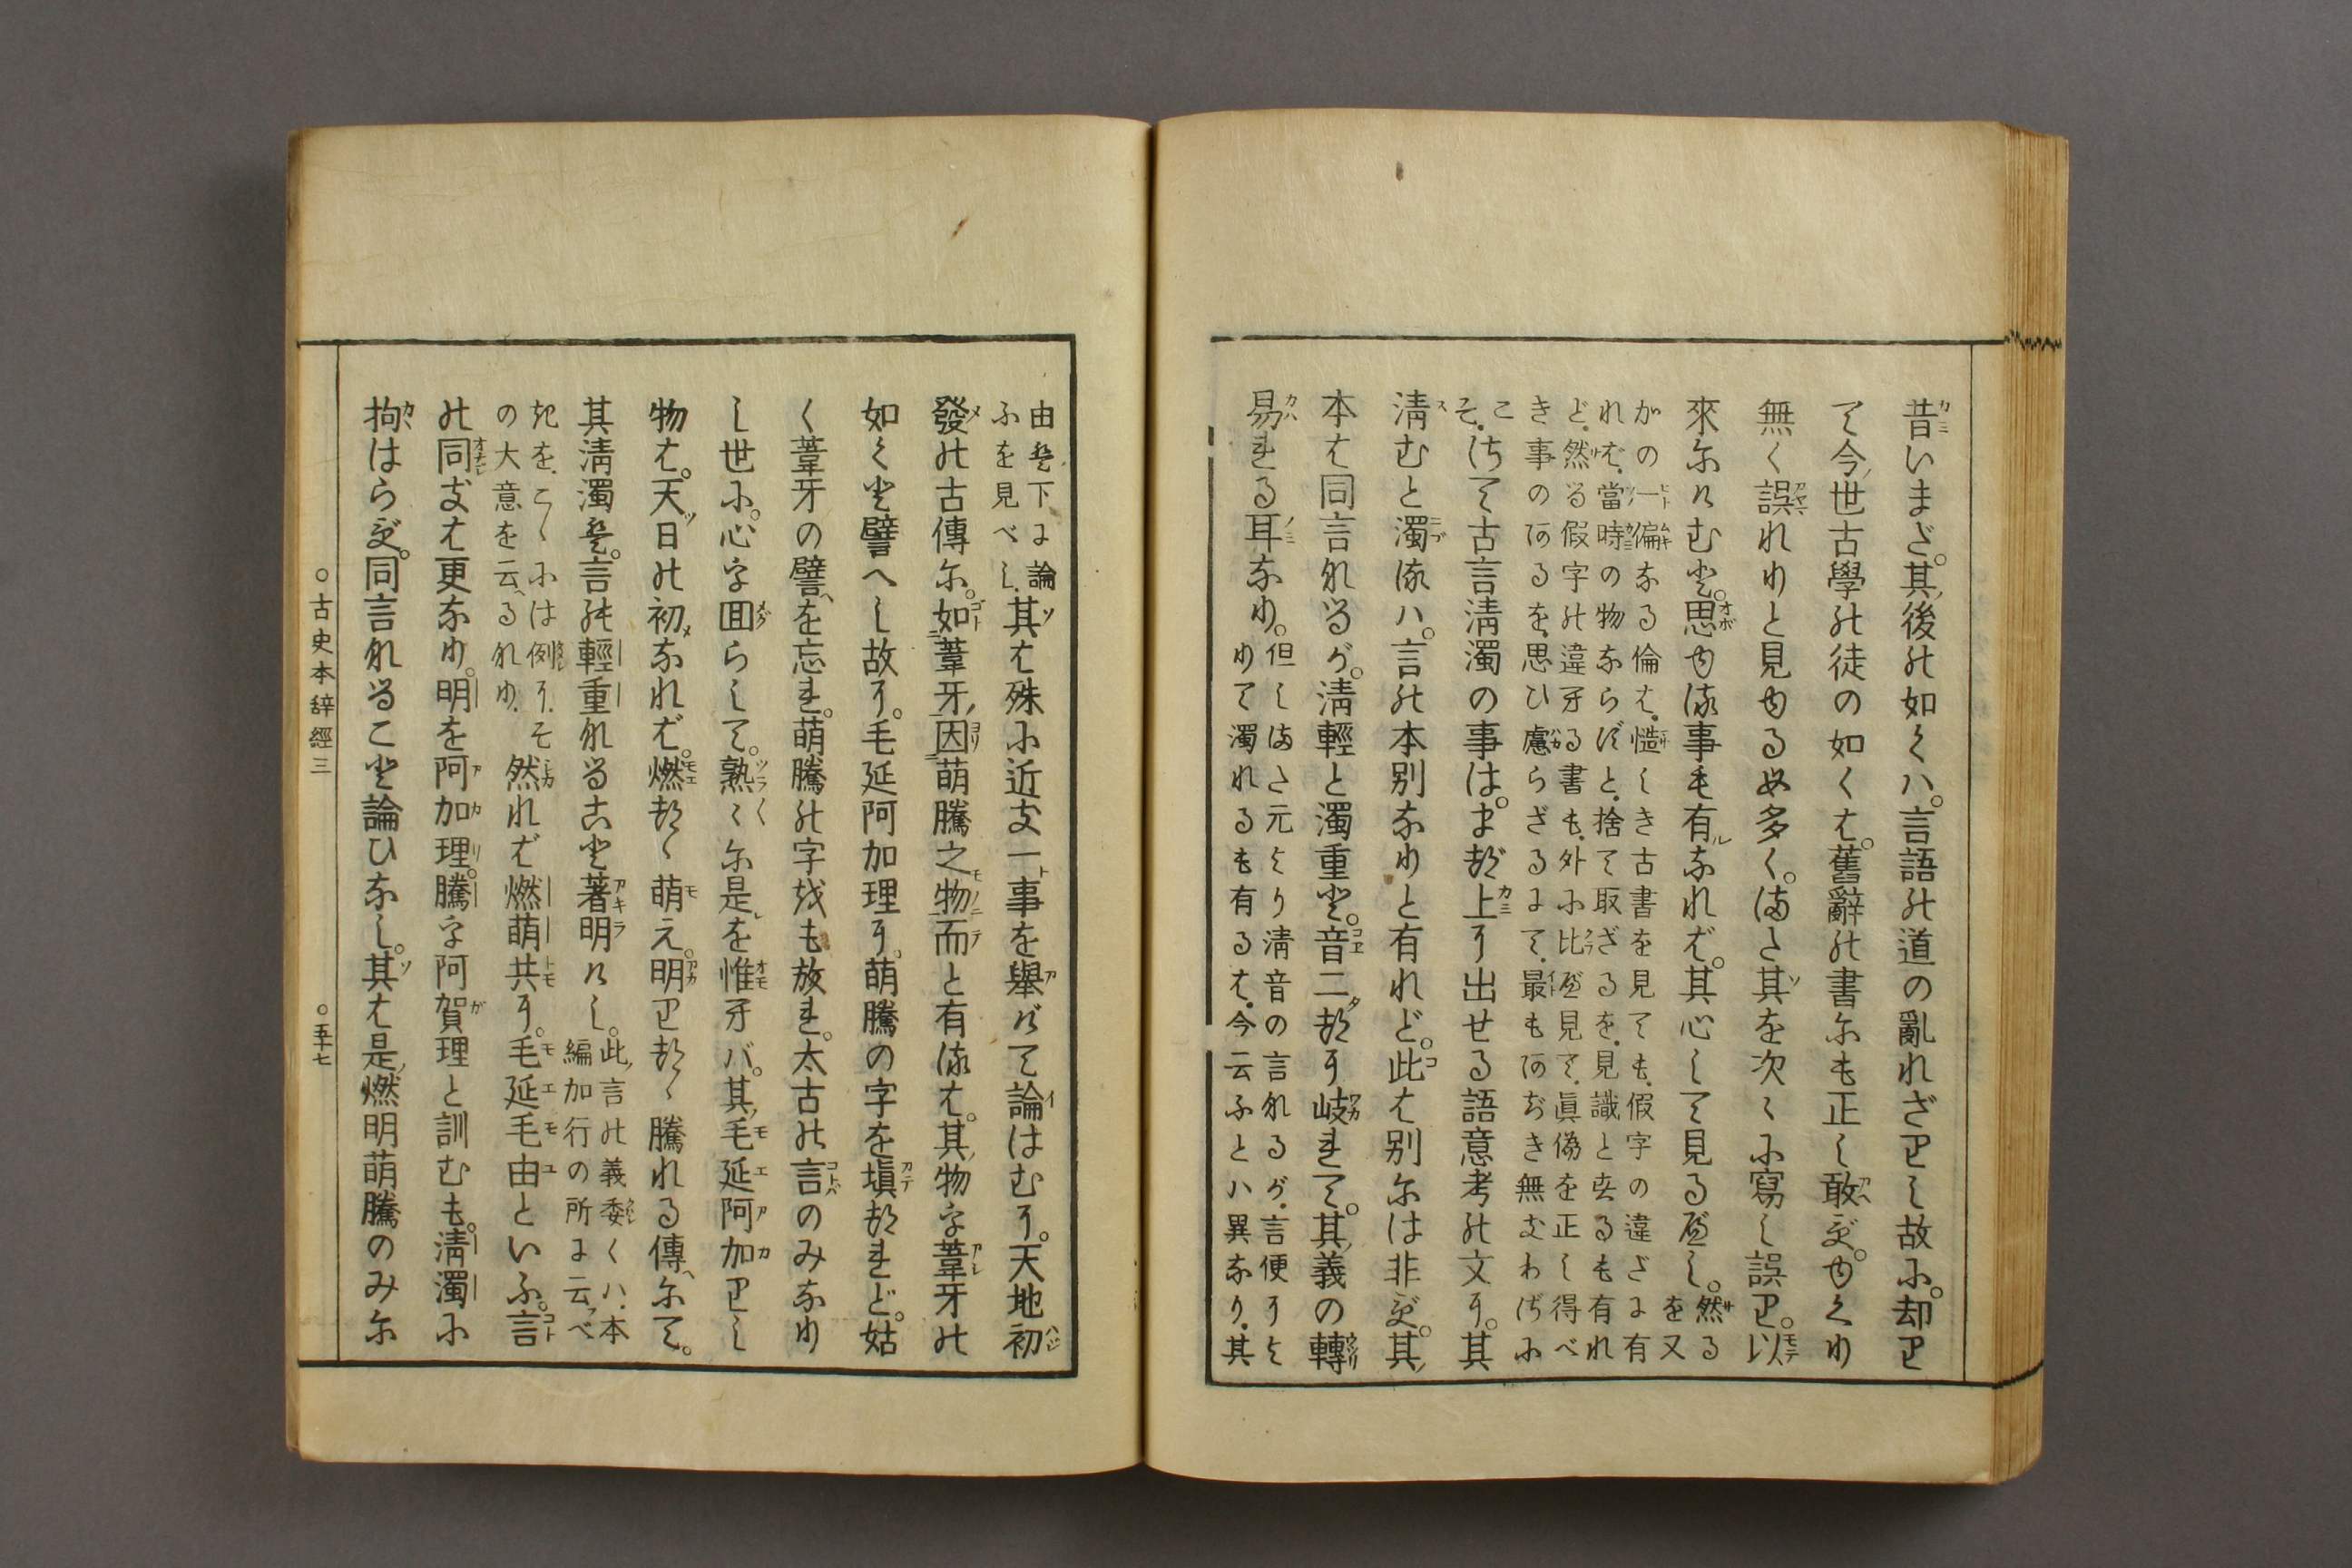 昔いまだ。其後の如くハ。言語の道の亂れざりし故に。却り
て今世古學の徒の如くは。舊辭の書にも正し敢ず。めくり
無く誤れりと見ゆるも多く。また其を次々に寫し誤り。以
來にけむと。思ゆる事も有なれば。其心して見るべし。然る
を又
がの一偏なる倫は、愷しき古書を見ても、假字の違ざま有
れば、當時の物ならずと、捨て取ざるを、見識とするも有れ
ど、然る假字の違へる書も、外に比べ見て、眞僞を正し得べ
き事のあるを、思ひ慮らざるよて、最もあぢき無きわざに
こ
そ。
さて古言淸濁の事は。まづ上に出せる語意考の文に。其
淸むと濁るハ。言の本別なりと有れど。此は別には非ず。其
本は同言なるが。淸輕と濁重と。音二つに岐れて。其義の轉
易れる耳なり。
但しまた元より淸音の言なるが、言便によ
りて濁れるも有るは、今云ふとハ異なり、其
由は下に論
ふを見べし、
其は殊に近き一事を舉げて論はむに。天地初
發の古傳に。如葦牙因萌騰之物而と有るは。其物を葦牙の
如くと譬へし故に。毛延阿加理に。萌騰の字を塡つれど。姑
く葦牙の譬を忘れ。萌騰の字をも放れ。太古の言のみなり
し世に。心を囬らして。熟々に是を惟へバ。其毛延阿加りし
物は。天日の初なれば。燃つゝ萌え。明りつゝ騰れる傳にて。
其淸濁は。言の輕重なること著明けし。
此言の義委くハ、本
編加行の所に云べ
きを、こゝには例に、そ
の大意を云るなり、
然れば燃萌共に。毛延毛由といふ。言
の同きは更なり。明を阿加理。騰を阿賀理と訓むも。淸濁に
拘はらず。同言なること論ひなし。其は是燃明萌騰のみに
○古史本辭經三
○五十七